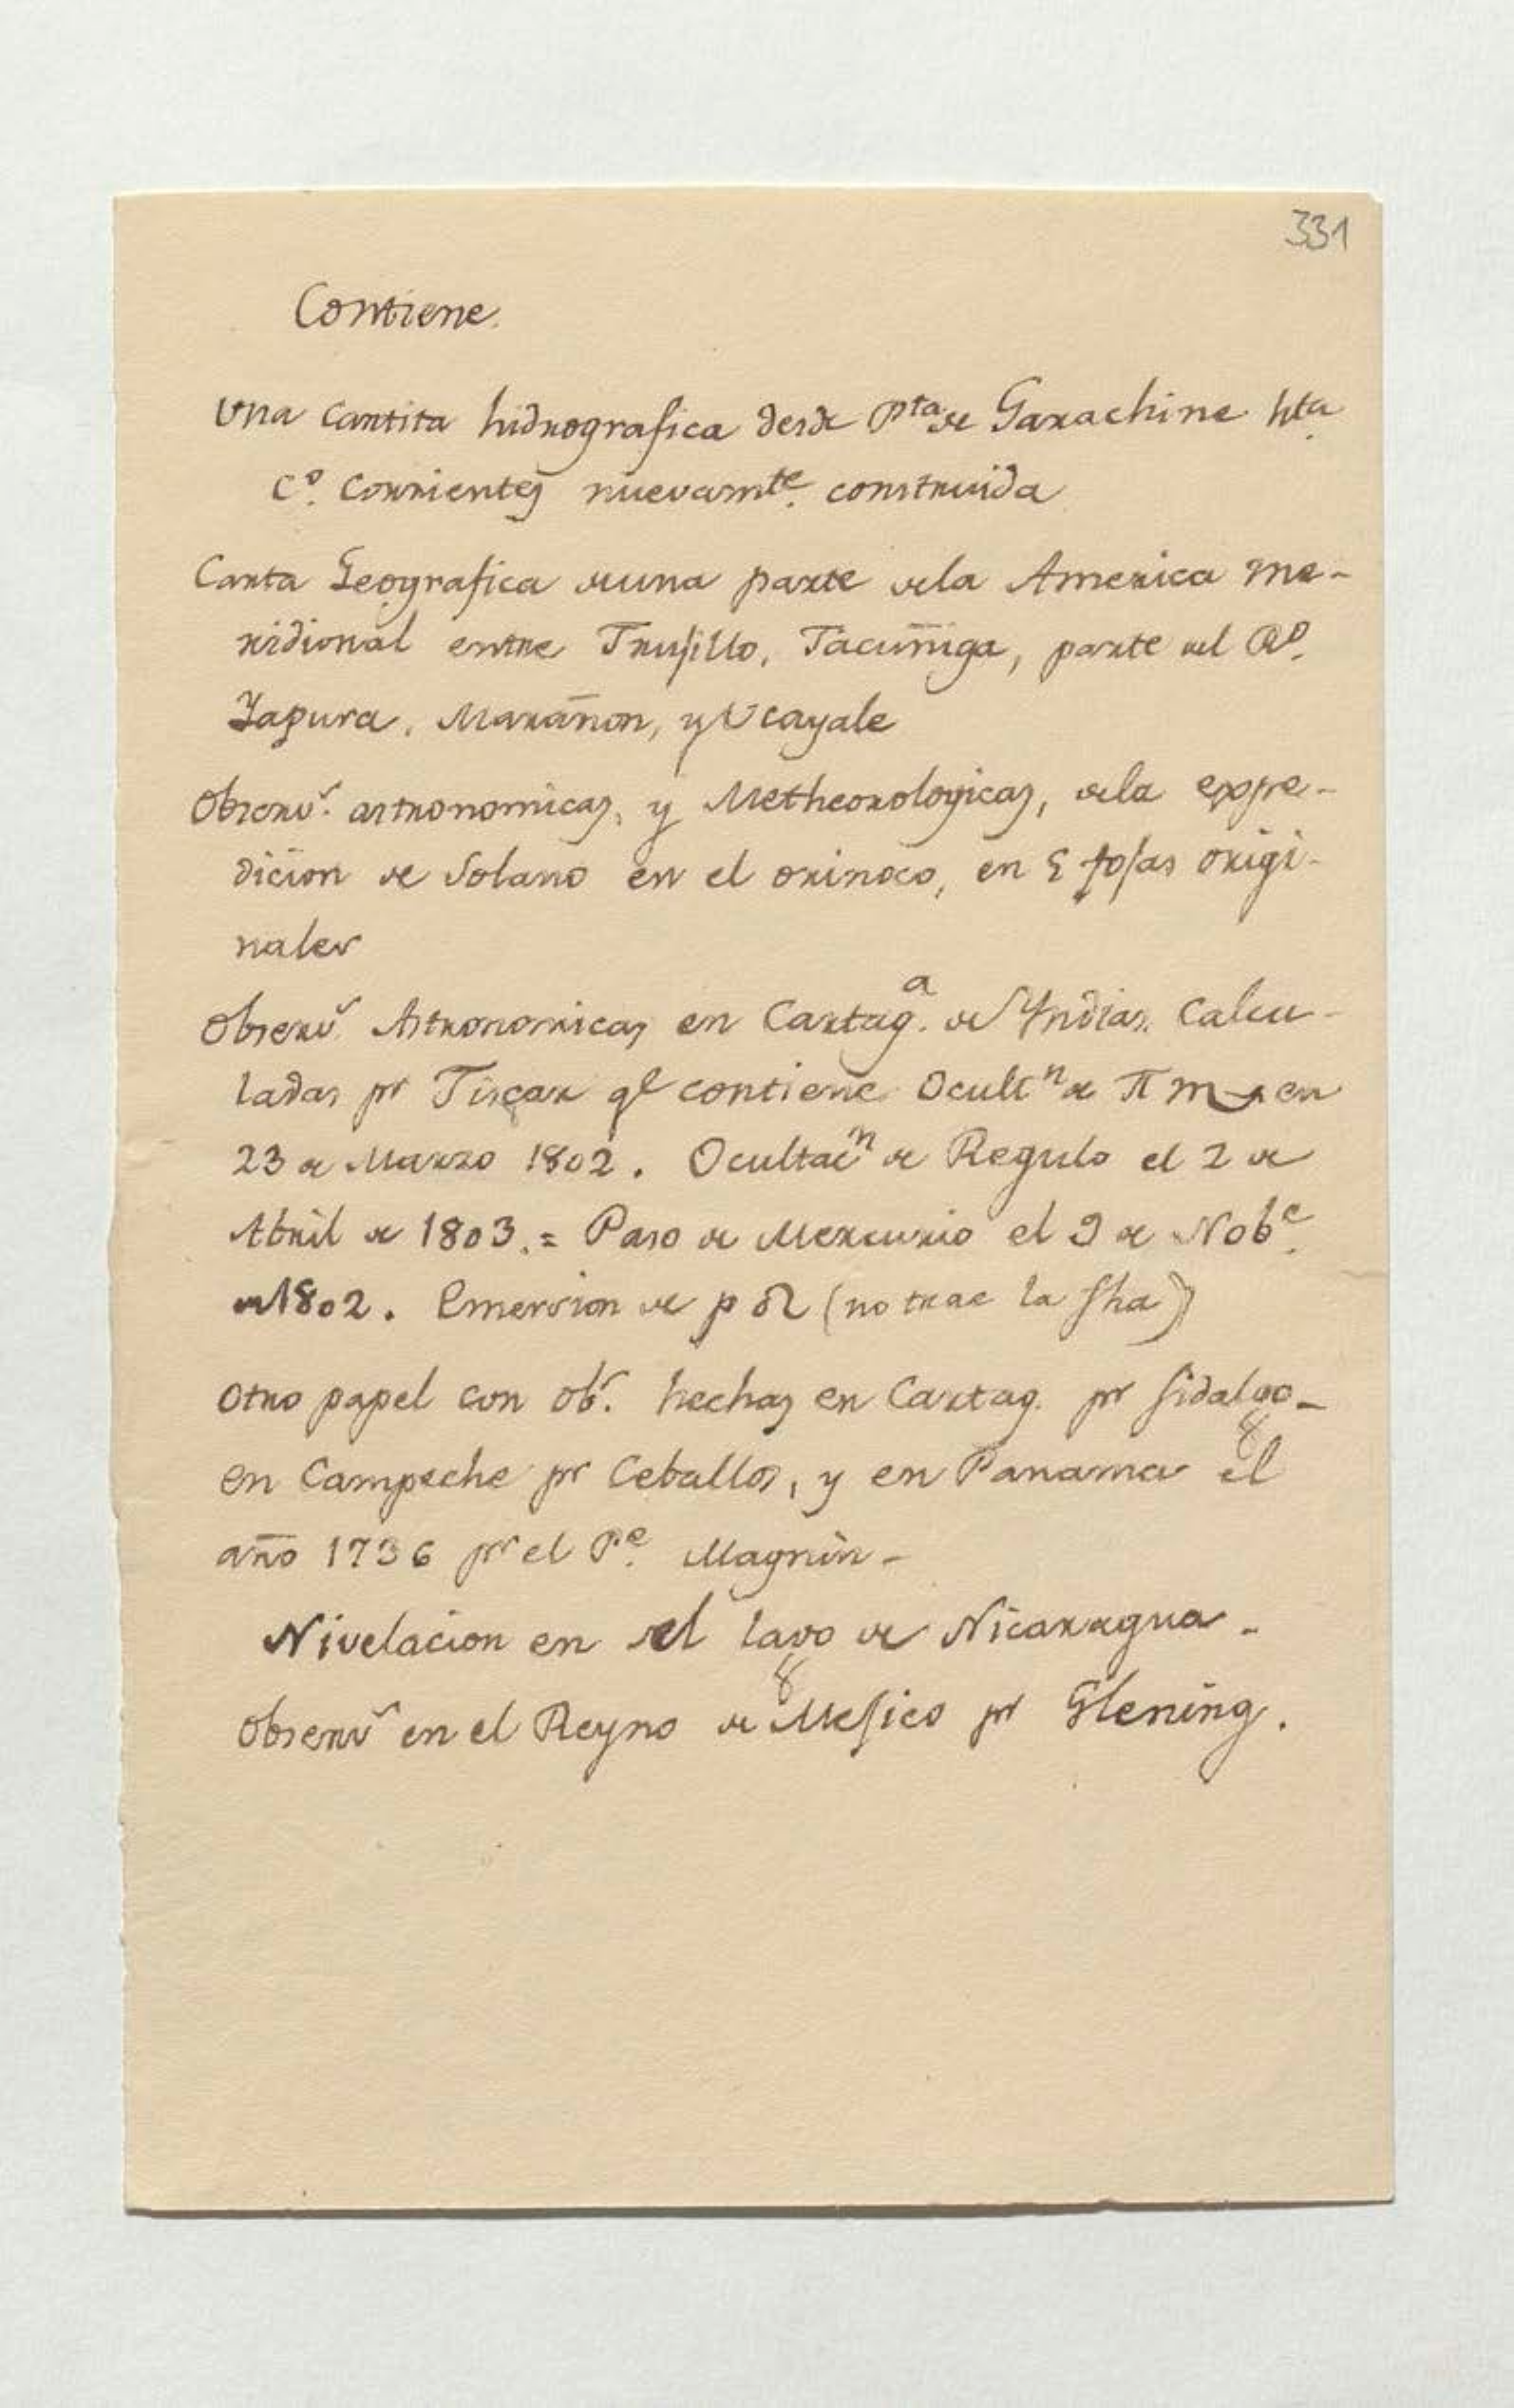 331
Contiene.
Una Cartita hidrografica desde Pta de Garachine hta
Co. Corrientes nuevamte. construida
Carta Geografica de una parte de la America me-
ridional entre Trujillo, Tacuñiga, parte del Ro.
Yapura, Marañon, y Ucayale
Observs. astronomicas, y Metheorologicas, de la expe-
dicion de Solano en el orinoco, en 5 fojas origi-
nales
Observs. Astronomicas en Cartaga. de Yndias. Calcu-
ladas pr Tiscar qe contiene Ocultn de π ♏ en
23 de Marzo 1802. Ocultacn de Regulo el 2 de
Abril de 1803. = Paso de Mercurio el 9 de Nobe.
de 1802. Emersion de p ♌ (no trae la fha)
Otro papel con obs. hechas en Cartag. pr fidalgo-
en Campeche pr Ceballos, y en Panama el
año 1736 pr el Pe. Magnin-
Nivelacion en el lago de Nicaragua.
Observs en el Reyno de Mejico pr Glening.